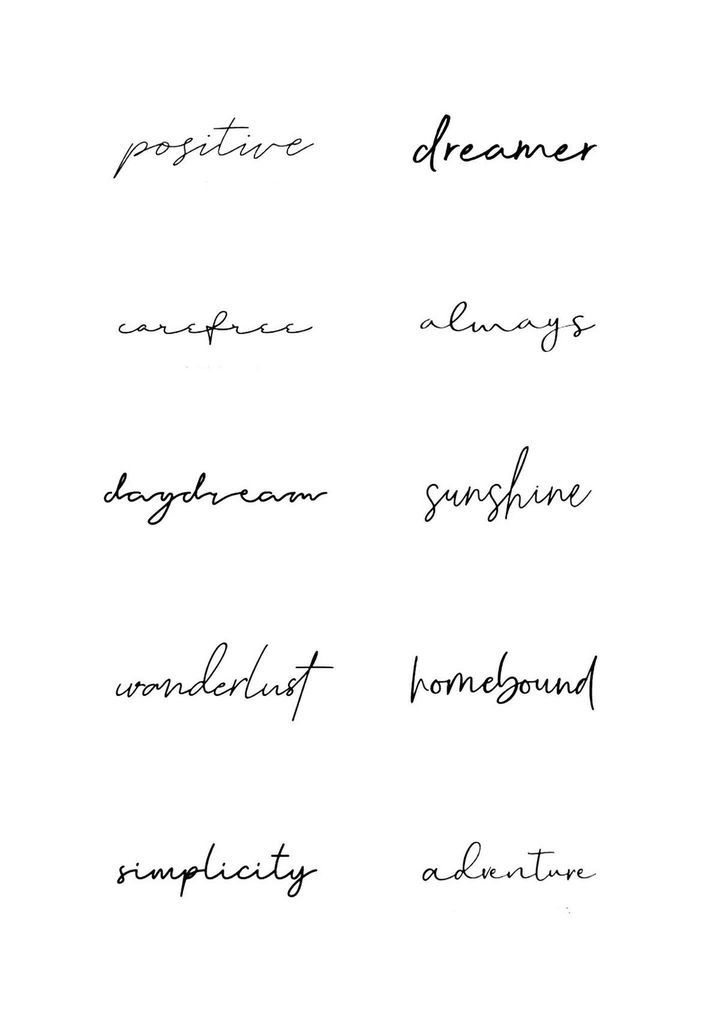 positive dreamer
carefree always
daydream sunshine
wanderlust homebound
simplicity adventure